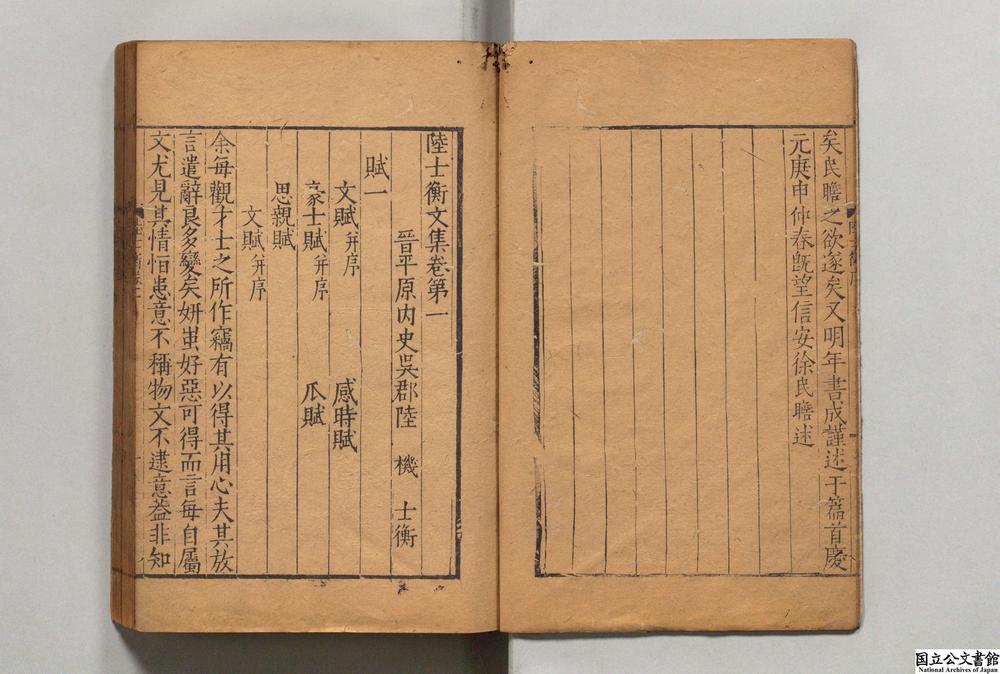 矣民瞻之欲遂矣又明年書成謹述于篇首慶
元庚申仲春既望信安徐民瞻述
陸士衡文集卷第一
晉平原內史吳郡陸機士衡
賦一
文賦并序 感時賦
豪士賦并序 瓜賦
思親賦
文賦并序
余每觀才士之所作竊有以得其用心夫其放
言遣辭良多變矣妍蚩好惡可得而言每自屬
文尤見其情恒患意不稱物文不逮意蓋非知
国立公文書館
National Archives of Japan